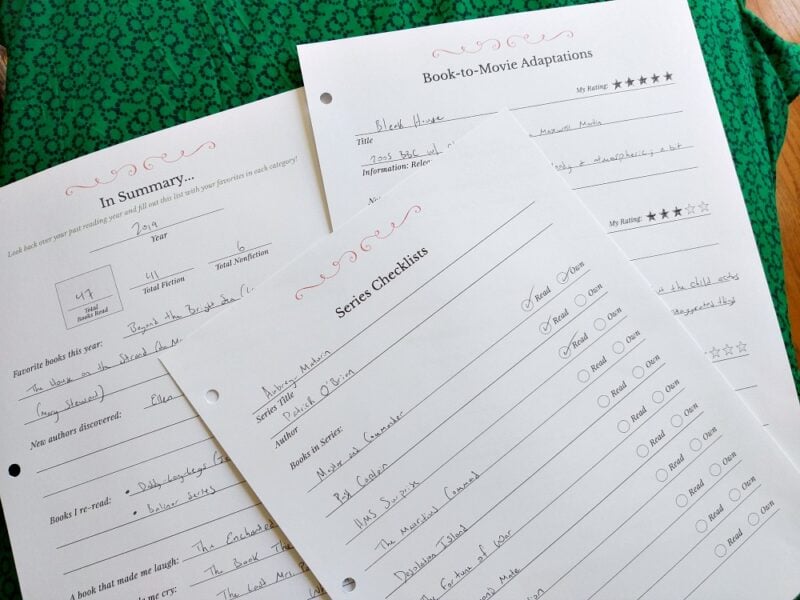 In Summary...
Look back over your past reading year and fill out this list with your favorites in each category!
2019
Year
47
Total
Books Read
41
Total Fiction
6
Total Nonfiction
Favorite books this year:
Beyond the Bright Sea
The House on the Strand
(Mary Stewart)
New authors discovered:
Ellen
Books I re-read:
• Daddy-Long-Legs
• Baliner Series
A book that made me laugh:
The Enchanted
me cry:
The Book
The Last Mrs. P
Book-to-Movie Adaptations
My Rating: ★★★★★
Bleak House
Title
2005 BBC w/
Maxwell Martin
Information: Relea
& atmospheric; a bit
My Rating: ★★★☆☆
the child actors
exaggerated
☆☆☆
Series Checklists
Aubrey Maturin
Series Title
Patrick O'Brian
Author
Books in Series:
Master and Commander
✓ Read ✓ Own
Post Captain
✓ Read Own
HMS Surprise
✓ Read Own
The Mauritius Command
Read Own
Desolation Island
Read Own
The Fortune of War
Read Own
Read Own
Read Own
Read Own